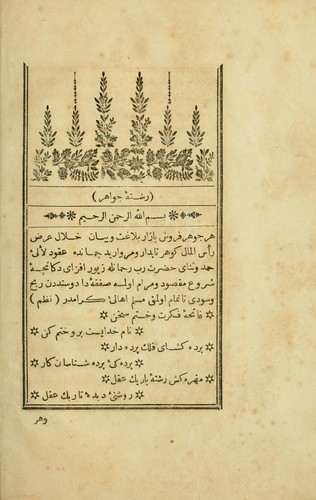 (رشتهٔ جواهر)
بسم الله الرحمن الرحيم
هر جوهر فروش بازار بلاغت وبيان خلال عرض
رأس المال كوهر تابدار ومرواريد جمانده عقود لآلئ
حمد وثناى حضرت رب رحمانله زيور افزاى دكانچهٔ
شروع مقصود ومرام اولمسه صفقهٔ داد وستددن ربح
وسودى ناتمام اولمق مسلم اهالئ كرامدر (نظم)
فاتحهٔ فكرت وختم سخن
نام خدايست برو ختم كن
پرده كشاى فلك پرده دار
پردكئ پرده شناسان كار
مهره كش رشتهٔ باريك عقل
روشنئ ديدهٔ تاريك عقل
وهر